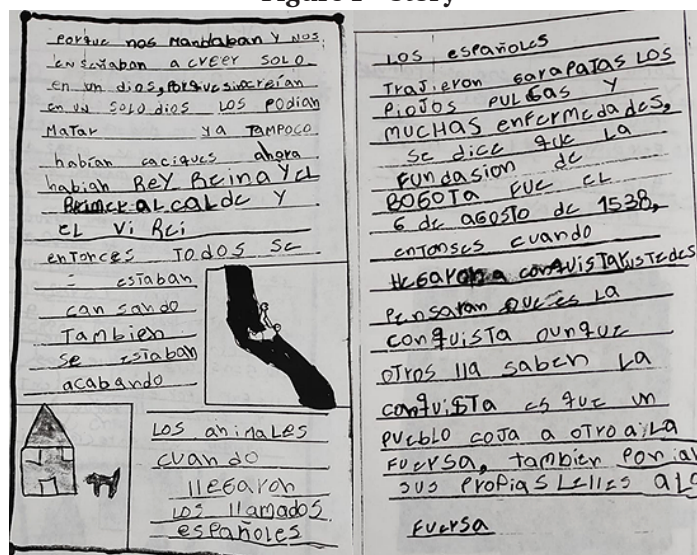 Figure 1 - Story
porque nos Mandaban Y NOS
enseñaban a creer SOLO
en un dios, porque si no creían
en un SOLO dios LOS PODIAN
MATAR YA TAMPOCO
habian caciques ahora
habian REY REINA Y EL
PRIMER ALCALDE Y
EL Vi REi
enTonces TODOS SE
ESTaban
canSando
Tambien
Se ESTaban
acabando
LOS aniMaLES
cuando
LLEGaron
LOS LLaMados
españoles
LOS españoles
TraJieron GaraPaTas LOS
PioJos PuLGas Y
MUCHAS enfermedades,
Se dice que La
Fundasion de
BOGOTA FUE EL
6 de aGosto de 1538,
enTonses cuando
LLEGaron a conquisTar usTedes
Pensaran que es La
conquisTa aunque
oTros lla saben La
conquisTa es que un
PuebLo coJa a oTro a La
Fuersa, Tambien Ponian
sus ProPias LeLLes a La
Fuersa